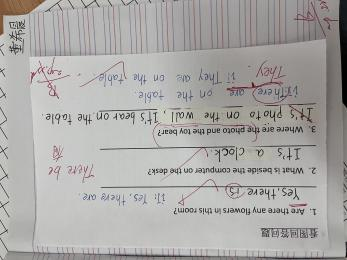 看图回答问题
1. Are there any flowers in this room?
Yes, there is. 订: Yes, there are.
2. What is beside the computer on the desk?
It's a clock. There be
3. Where are the photo and the toy bear?
It's photo on the wall, It's bear on the table.
订: There are on the table.
订: They are on the table.
They